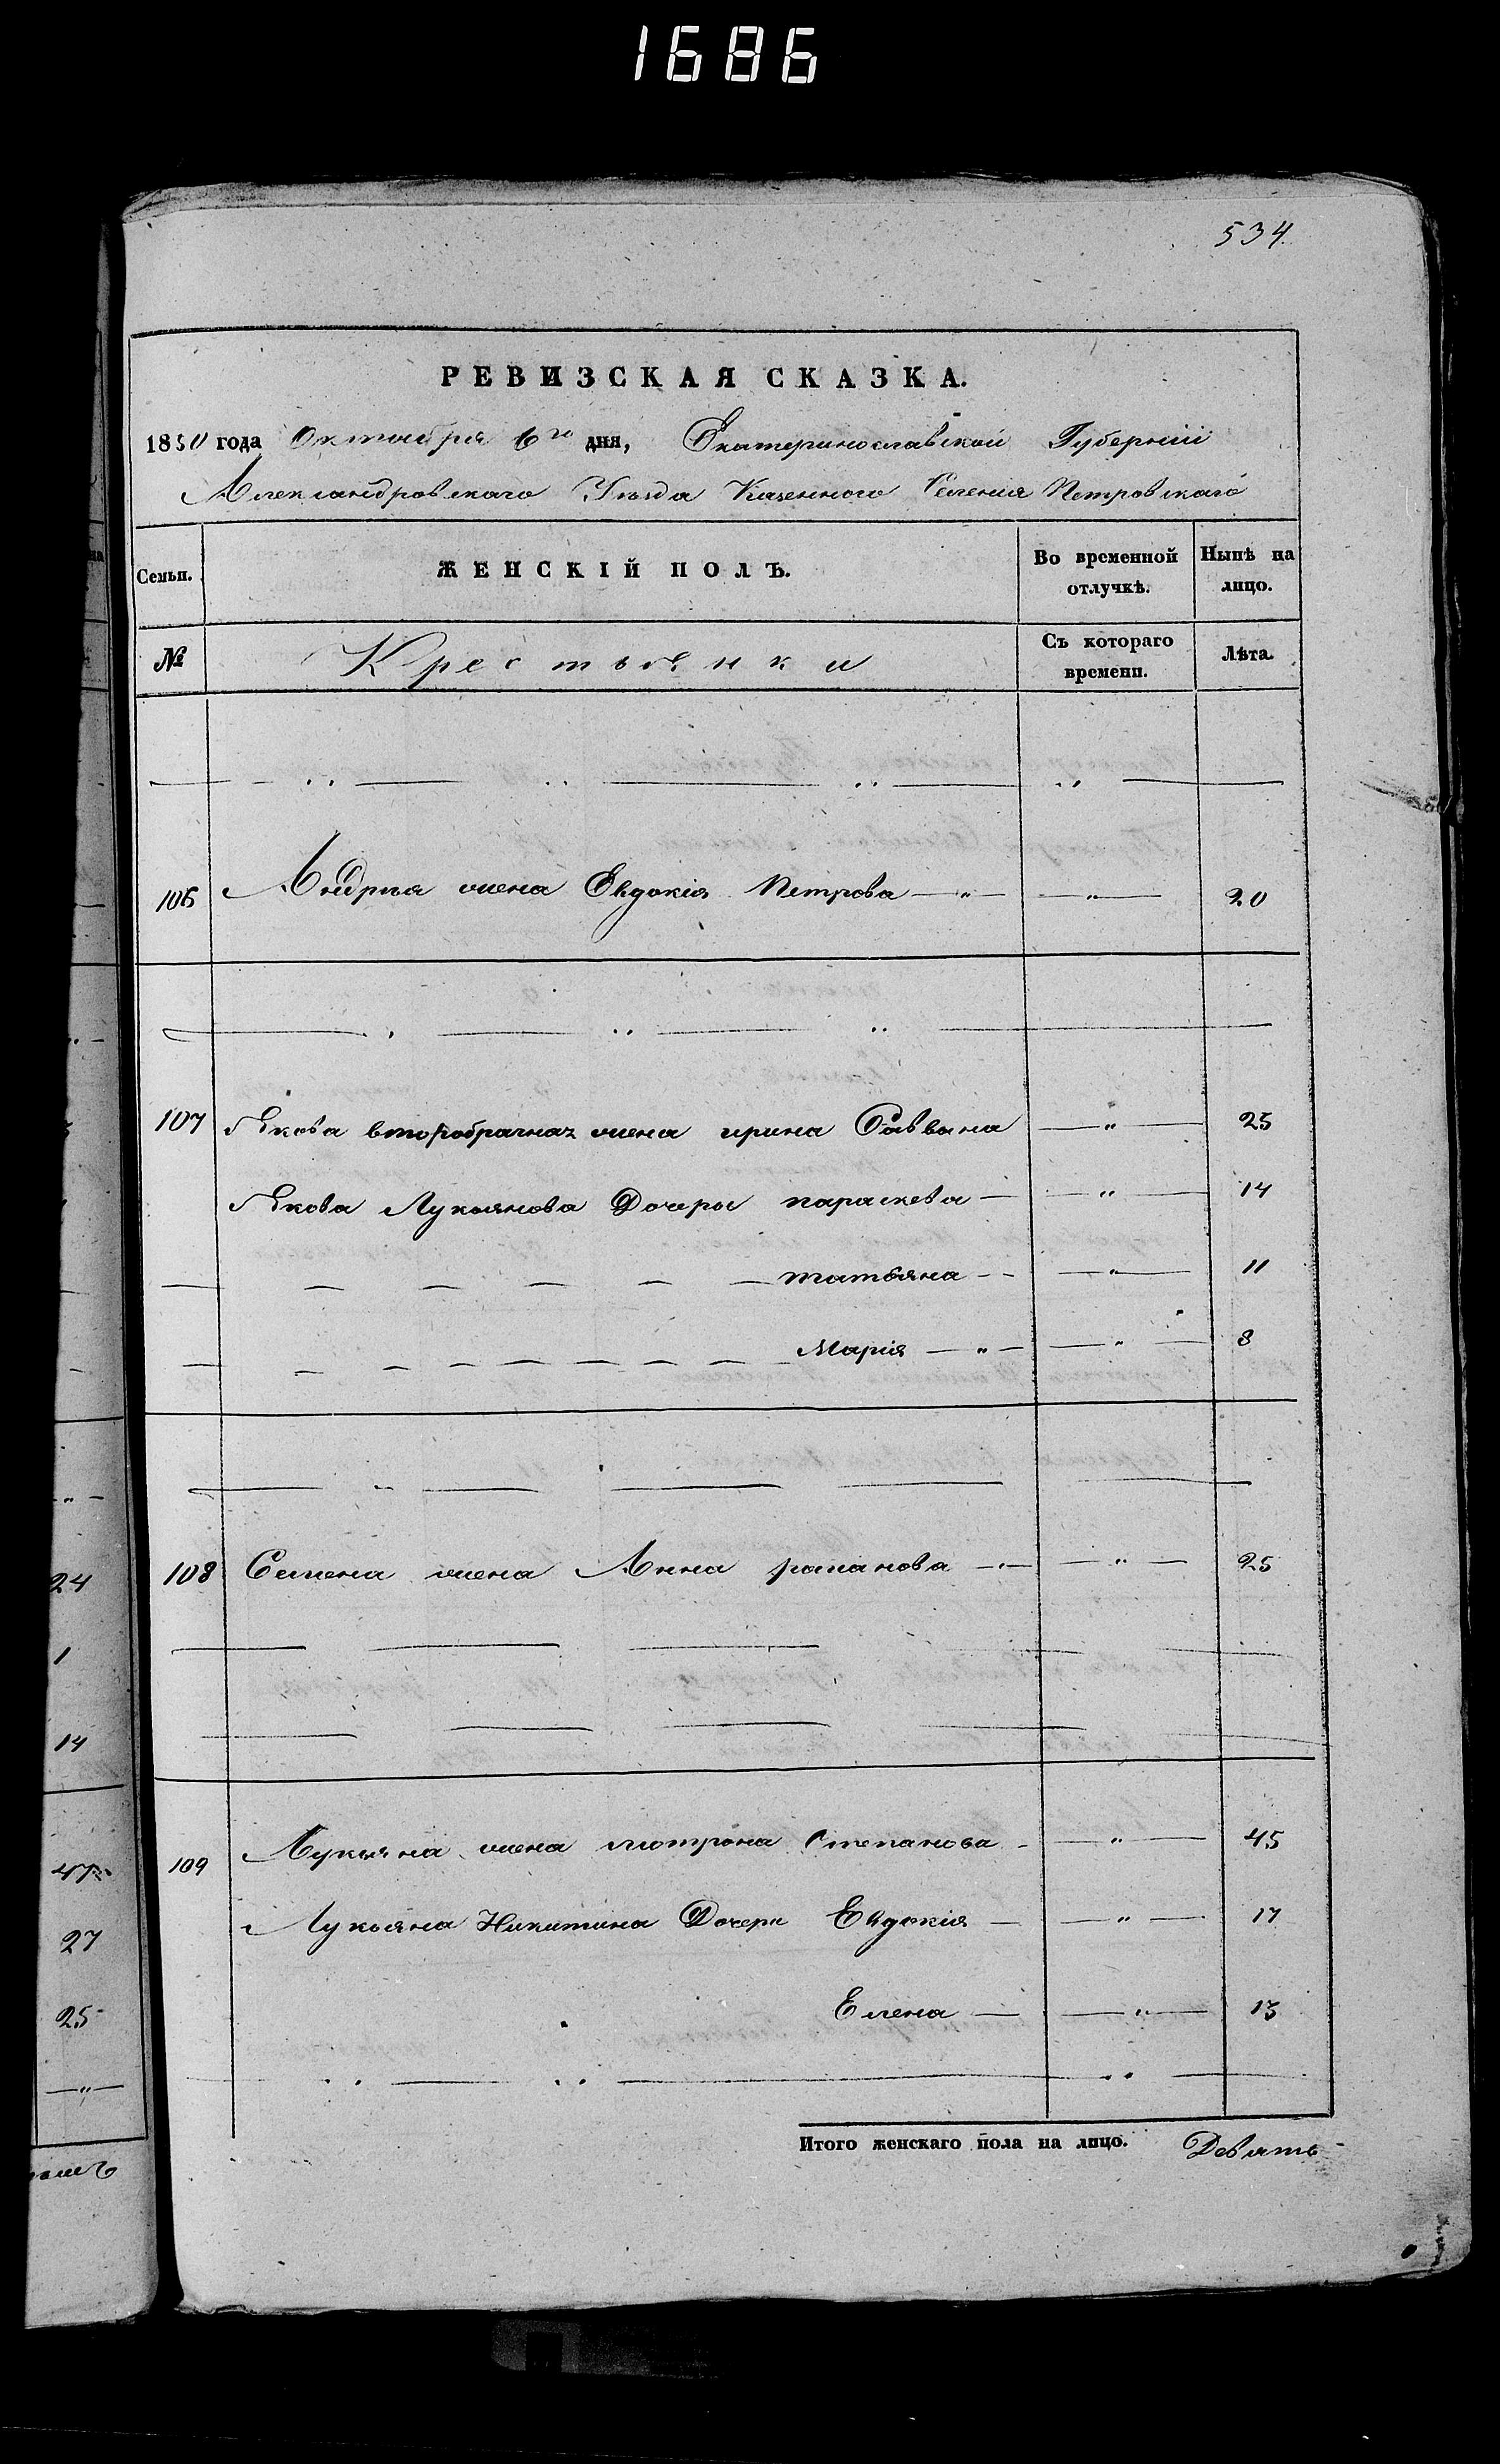 1686
534.
РЕВИЗСКАЯ СКАЗКА.
1850 года Октября 6го дня, Екатеринославской Губерніи
Александровскаго Уѣзда Казенного Селенія Петровскаго
Семьи.
ЖЕНСКІЙ ПОЛЪ.
Во временной отлучкѣ.
Нынѣ на лицо.
№
Крестьянки
Съ котораго времени.
Лѣта.
106 Андрея жена Евдокія Петрова — „ — — „ — 20
107 Якова второбрачная жена ирина Саввина — „ — 25
Якова Лукьянова Дочеры параскева — — „ — 14
татьяна — — „ — 11
Марія — „ — — „ — 8
108 Семена жена Анна — „ — — „ — 25
109 Лукьяна жена мотрона Степанова — „ — 45
Лукьяна Никитина Дочери Евдокія — — „ — 17
Елена — — „ — 13
Итого женскаго пола на лицо. Девять
24
1
14
47
27
25